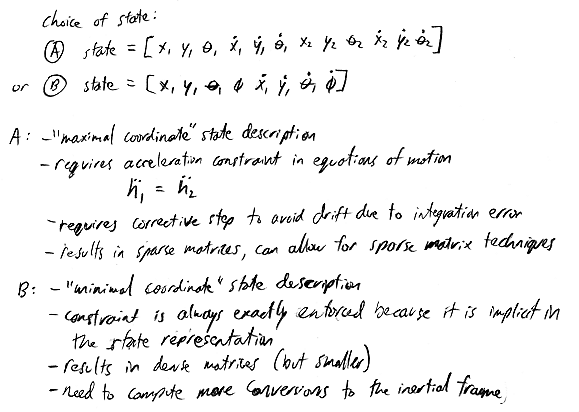 choice of state:
Ⓐ state = [x₁ y₁ θ₁ ẋ₁ ẏ₁ θ̇₁ x₂ y₂ θ₂ ẋ₂ ẏ₂ θ̇₂]
or Ⓑ state = [x₁ y₁ θ₁ φ ẋ₁ ẏ₁ θ̇₁ φ̇]
A: - "maximal coordinate" state description
- requires acceleration constraint in equations of motion
ḧ₁ = ḧ₂
- requires corrective step to avoid drift due to integration error
- results in sparse matrices, can allow for sparse matrix techniques
B: - "minimal coordinate" state description
- constraint is always exactly enforced because it is implicit in
the state representation
- results in dense matrices (but smaller)
- need to compute more conversions to the inertial frame